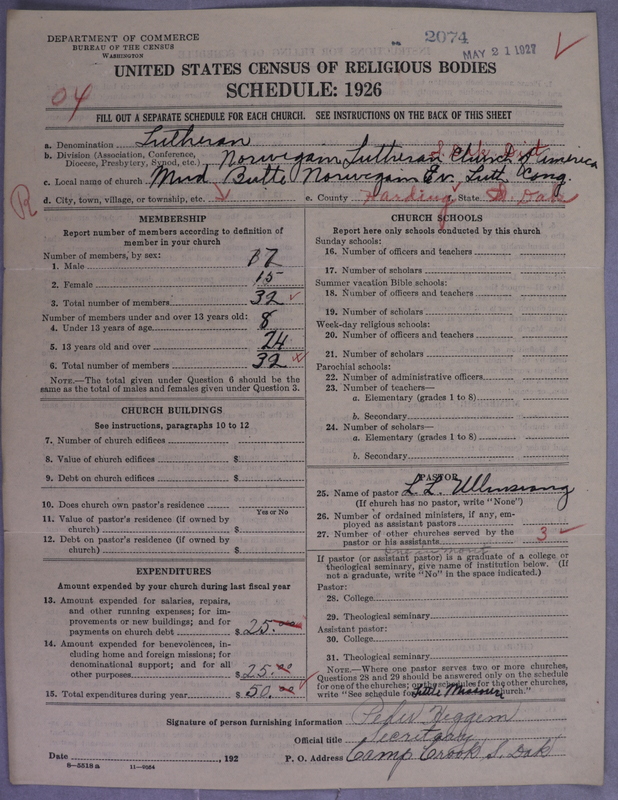 DEPARTMENT OF COMMERCE
BUREAU OF THE CENSUS
WASHINGTON
2074
MAY 21 1927
UNITED STATES CENSUS OF RELIGIOUS BODIES
SCHEDULE: 1926
04
FILL OUT A SEPARATE SCHEDULE FOR EACH CHURCH. SEE INSTRUCTIONS ON THE BACK OF THIS SHEET
a. Denomination Lutheran
b. Division (Association, Conference,
Diocese, Presbytery, Synod, etc.) Norwegain Lutheran Church of America
c. Local name of church Mud Butte Norwegain Ev. Luth Cong.
d. City, town, village, or township, etc. e. County Harding State S. Dak
R
MEMBERSHIP
Report number of members according to definition of
member in your church
Number of members, by sex:
1. Male 17
2. Female 15
3. Total number of members 32
Number of members under and over 13 years old:
4. Under 13 years of age 8
5. 13 years old and over 24
6. Total number of members 32
NOTE.—The total given under Question 6 should be the
same as the total of males and females given under Question 3.
CHURCH BUILDINGS
See instructions, paragraphs 10 to 12
7. Number of church edifices
8. Value of church edifices $
9. Debt on church edifices $
10. Does church own pastor's residence
Yes or No
11. Value of pastor's residence (if owned by
church) $
12. Debt on pastor's residence (if owned by
church) $
EXPENDITURES
Amount expended by your church during last fiscal year
13. Amount expended for salaries, repairs,
and other running expenses; for im-
provements or new buildings; and for
payments on church debt $ 25.00
14. Amount expended for benevolences, in-
cluding home and foreign missions; for
denominational support; and for all
other purposes $ 25.00
15. Total expenditures during year $ 50.00
CHURCH SCHOOLS
Report here only schools conducted by this church
Sunday schools:
16. Number of officers and teachers
17. Number of scholars
Summer vacation Bible schools:
18. Number of officers and teachers
19. Number of scholars
Week-day religious schools:
20. Number of officers and teachers
21. Number of scholars
Parochial schools:
22. Number of administrative officers
23. Number of teachers—
a. Elementary (grades 1 to 8)
b. Secondary
24. Number of scholars—
a. Elementary (grades 1 to 8)
b. Secondary
PASTOR
25. Name of pastor L. L.
(If church has no pastor, write "None")
26. Number of ordained ministers, if any, em-
ployed as assistant pastors
27. Number of other churches served by the
pastor or his assistants 3
If pastor (or assistant pastor) is a graduate of a college or
theological seminary, give name of institution below. (If
not a graduate, write "No" in the space indicated.)
Pastor:
28. College
29. Theological seminary
Assistant pastor:
30. College
31. Theological seminary
NOTE.—Where one pastor serves two or more churches,
Questions 28 and 29 should be answered only on the schedule
for one of the churches; on the schedules for the other churches,
write "See schedule for Little Missouri church."
Signature of person furnishing information Peder Heggem
Official title Secretary
Date , 192 P. O. Address Camp Crook S. Dak
8—5518 a 11—9264